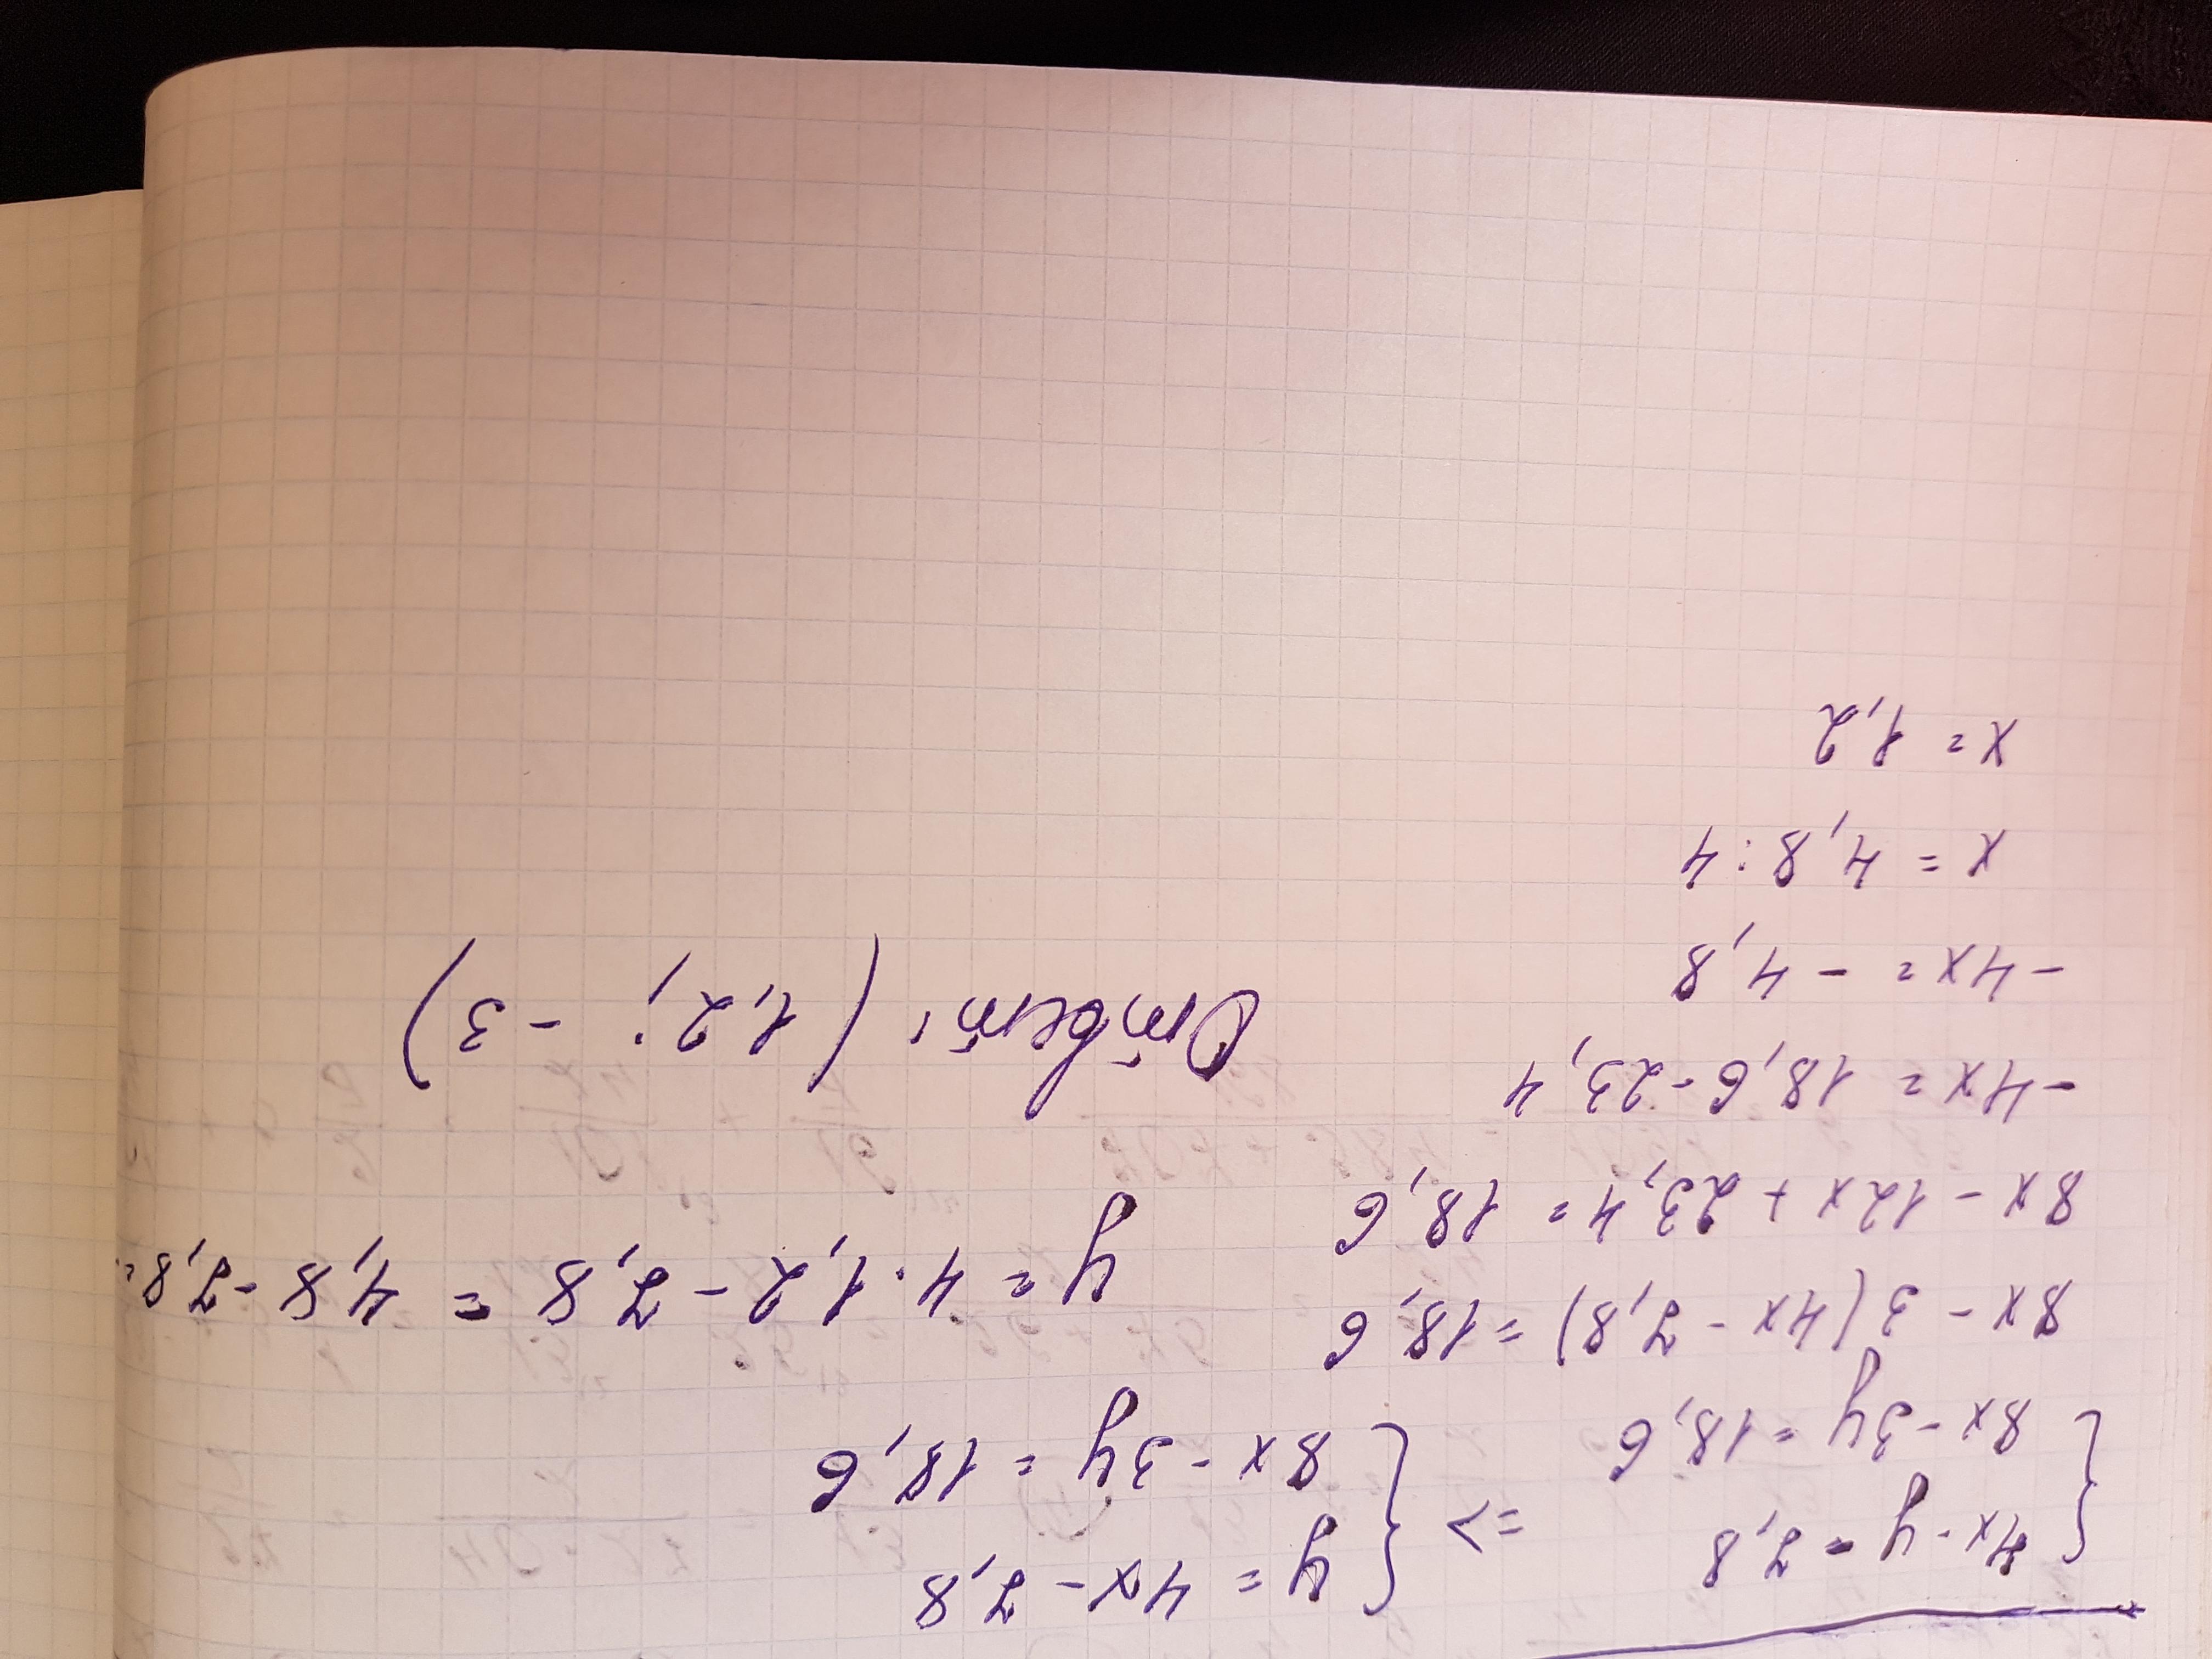 4x - y = 7,8 => y = 4x - 7,8
8x - 3y = 18,6 8x - 3y = 18,6
8x - 3(4x - 7,8) = 18,6
8x - 12x + 23,4 = 18,6
-4x = 18,6 - 23,4
-4x = -4,8
x = 4,8 : 4
x = 1,2
y = 4 · 1,2 - 7,8 = 4,8 - 7,8 =
Ответ: (1,2; -3)